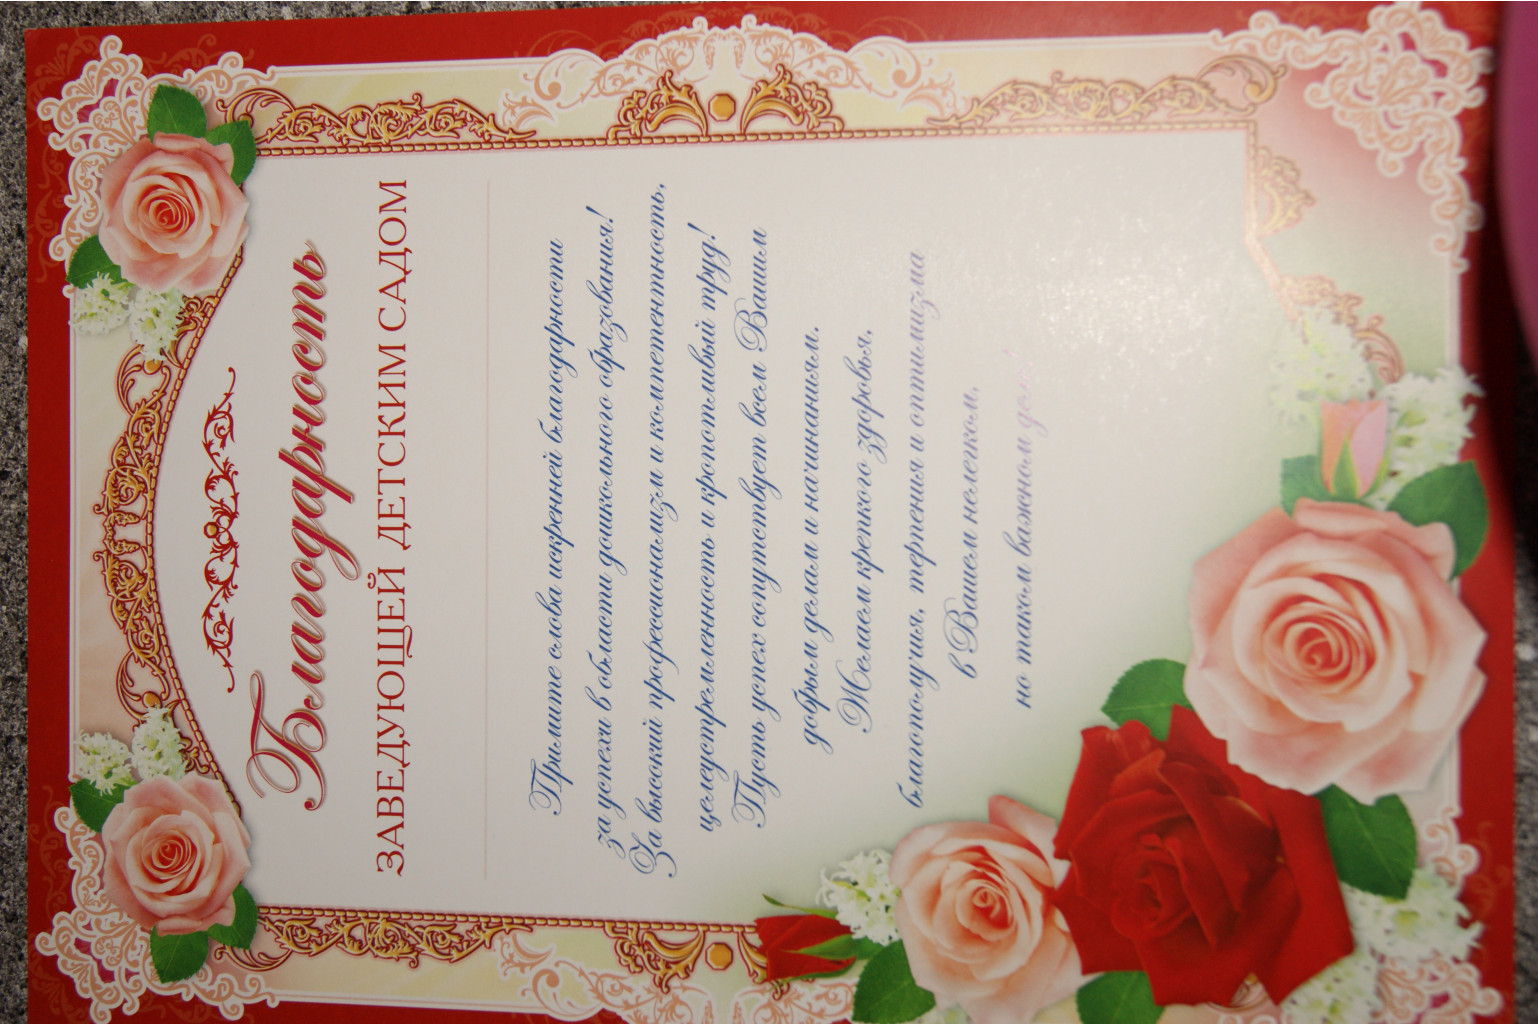 Благодарность
ЗАВЕДУЮЩЕЙ ДЕТСКИМ САДОМ
Примите слова искренней благодарности
за успехи в области дошкольного образования!
За высокий профессионализм и компетентность,
целеустремленность и кропотливый труд!
Пусть успех сопутствует всем Вашим
добрым делам и начинаниям.
Желаем крепкого здоровья,
благополучия, терпения и оптимизма
в Вашем нелегком,
но таком важном деле!